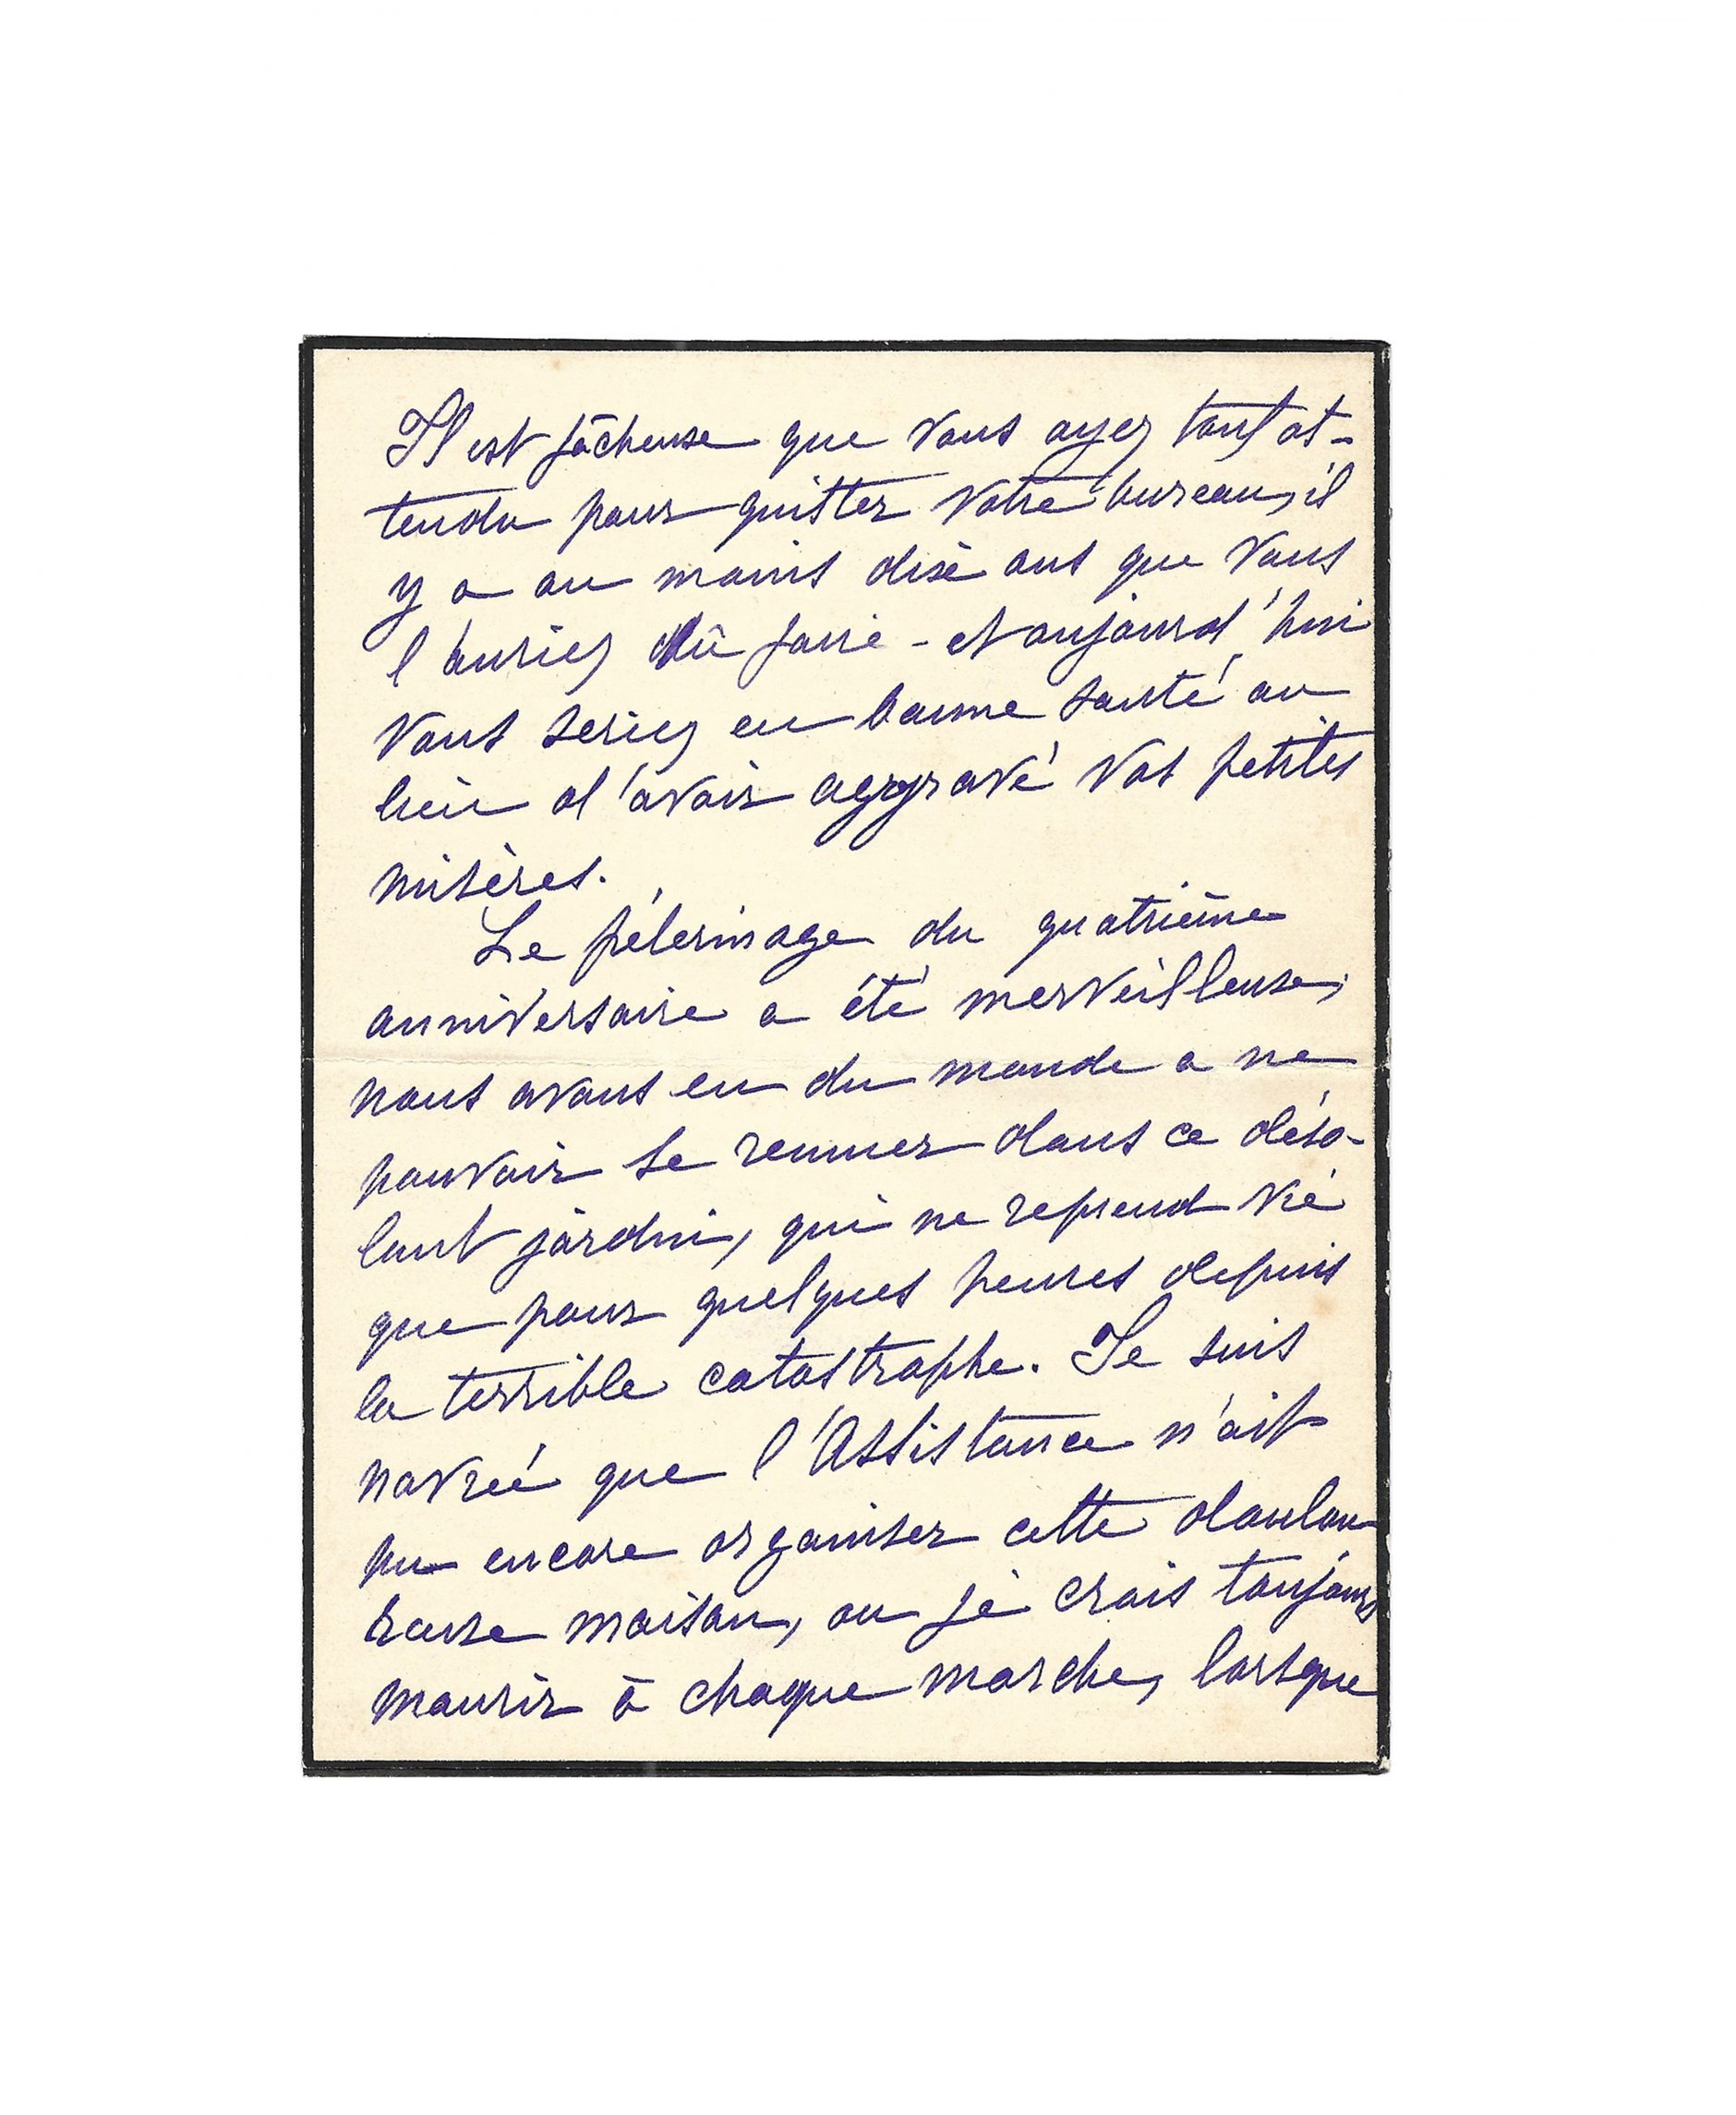 Il est fâcheuse que vous ayez tant at-
tendu pour quitter votre bureau, il
y a au moins dixe ans que vous
l'auriez dû faire - et aujourd'hui
vous seriez en bonne santé au
lieu d'avoir aggravé vos petites
misères.
Le pélerinage du quatrième
anniversaire a été merveilleuse,
nous avons eu du monde a ne
pouvoir se remuer dans ce déso-
lant jardin, qui ne reprend vie
que pour quelques heures depuis
la terrible catastrophe. Je suis
navrée que l'Assistance n'ait
pu encore organiser cette doulou-
reuse maison, ou je crois toujours
mourir à chaque marche, lorsque